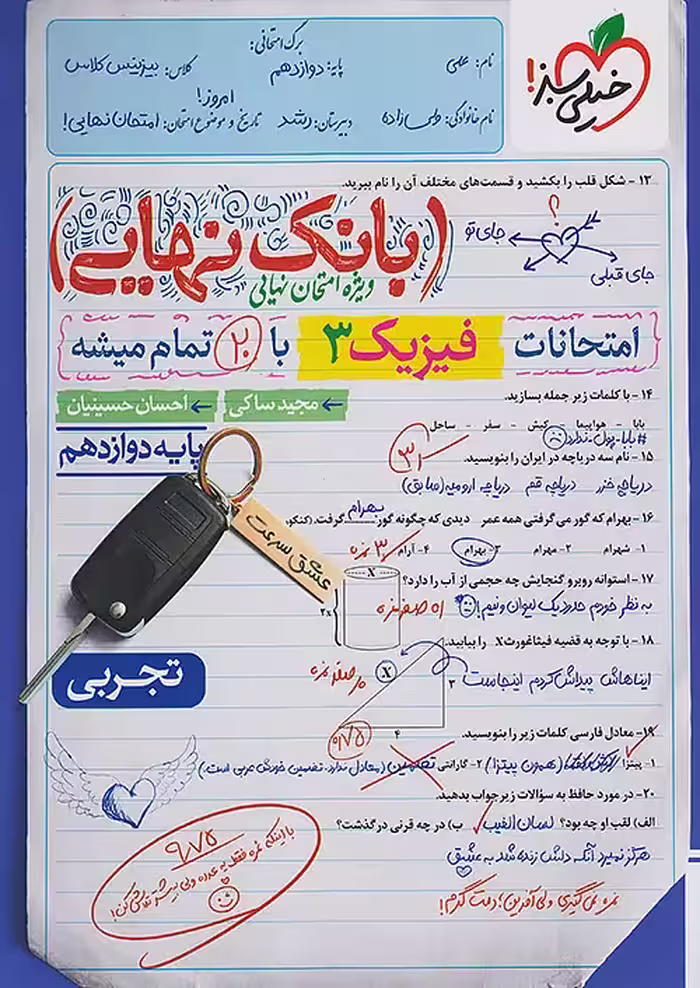 خیلی سبز!
برگ امتحانی:
نام: علی
پایه: دوازدهم
کلاس: بیزینس کلاس
نام خانوادگی: ولی زاده
دبیرستان: رشد
تاریخ و موضوع امتحان: امروز! امتحان نهایی!
۱۳ - شکل قلب را بکشید و قسمت‌های مختلف آن را نام ببرید.
؟
جای تو
جای قبلی
(بانک نهایی)
ویژه امتحان نهایی
امتحانات فیزیک ۳ با ۲۰ تمام میشه
۱۴ - با کلمات زیر جمله بسازید.
مجید ساکی ← احسان حسینیان ←
بابا - هواپیما - کیش - سفر - ساحل
#بابا_پول_ندارد
پایه دوازدهم
۱۵ - نام سه دریاچه در ایران را بنویسید.
دریاچه خزر دریاچه قم دریاچه ارومیه (سابق)
۱۶ - بهرام که گور می‌گرفتی همه عمر دیدی که چگونه گور بهرام گرفت. (کنکور
۱- شهرام ۲- مهرام ۳- بهرام ۴- آرام
عشق سرعت
۱۷ - استوانه روبرو گنجایش چه حجمی از آب را دارد؟
X
۲x
به نظر خودم حدود یک لیوان و نیم!
۱۸ - با توجه به قضیه فیثاغورث X را بیابید.
X
۳
۴
ایناهاش پیداش کردم اینجاست
تجربی
۰/۷۵
۱۹- معادل فارسی کلمات زیر را بنویسید.
۱- پیتزا (همون پیتزا) ۲- گارانتی تضمین (معادل ندارد. تضمین خودش عربی است.)
۲۰- در مورد حافظ به سؤالات زیر جواب بدهید.
الف) لقب او چه بود؟ لسان الغیب ب) در چه قرنی درگذشت؟
هرگز نمیرد آنکه دلش زنده شد به عشق
نمره نمی‌گیری ولی آفرین؛ دمت گرم!
۹/۷۵
با اینکه نمره فقط یه عدده ولی بیشتر تلاش کن!